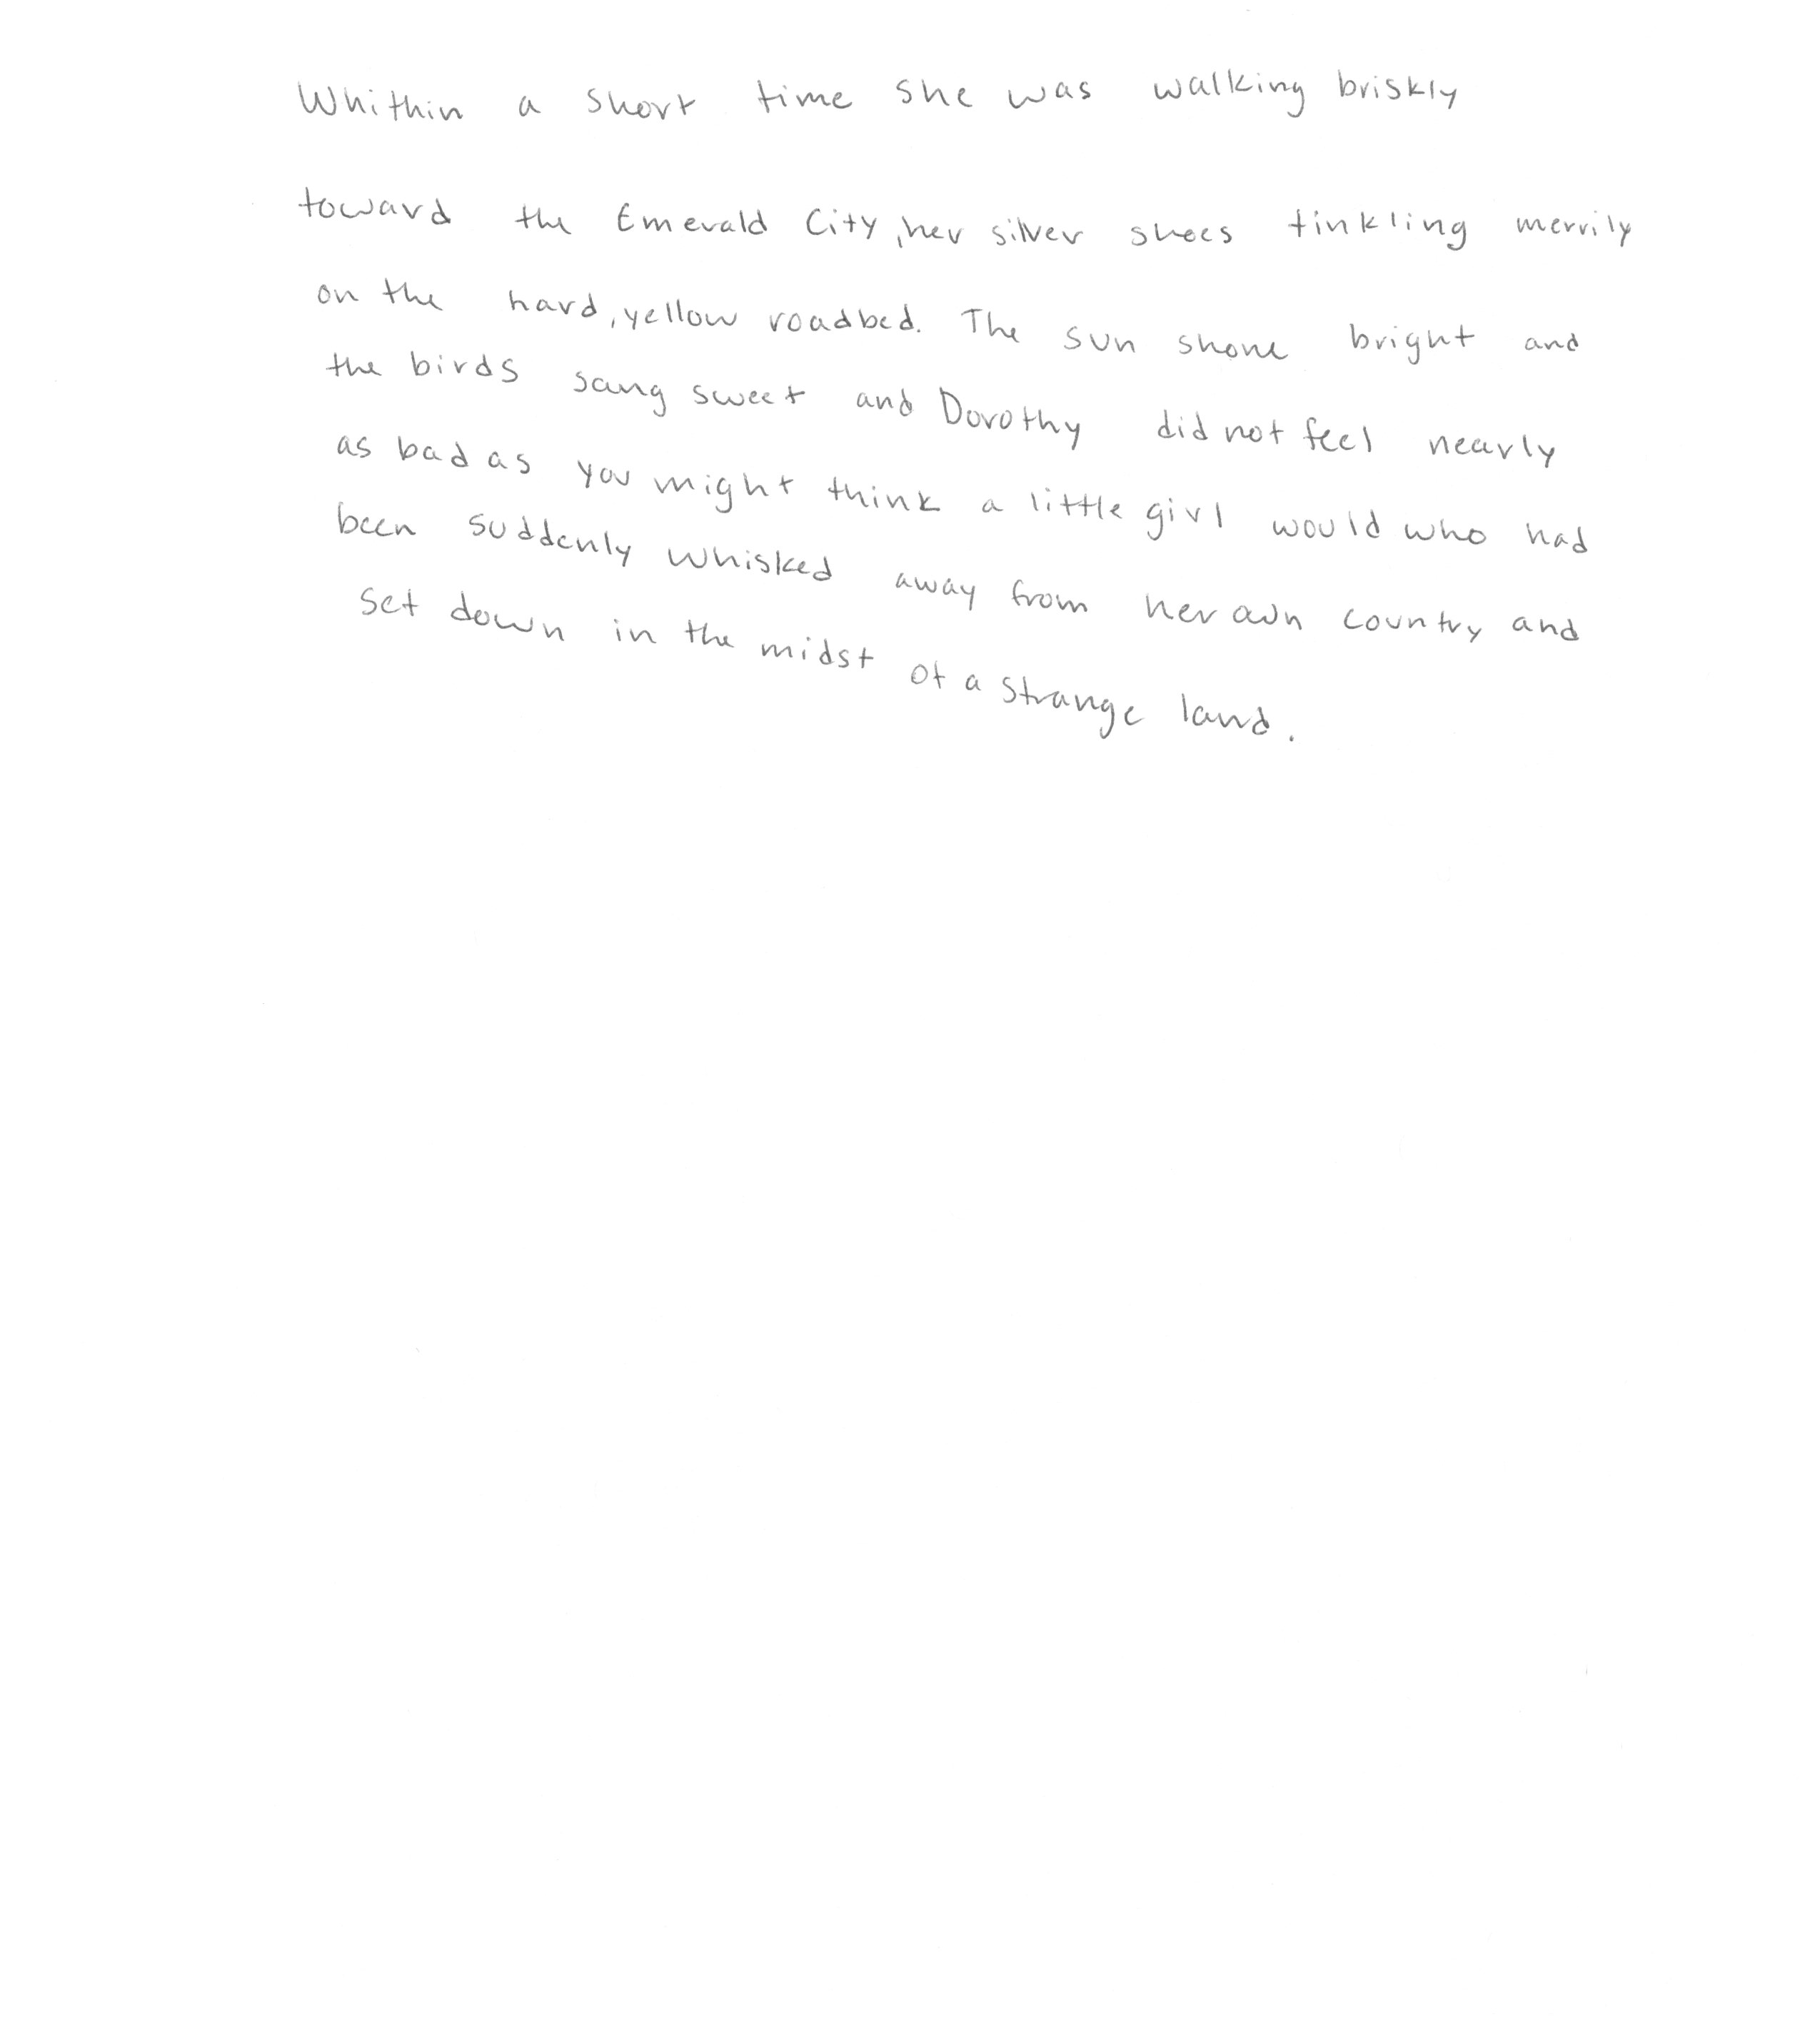 Whithin a short time she was walking briskly
toward the Emerald City, her silver shoes tinkling merrily
on the hard, yellow roadbed. The sun shone bright and
the birds sang sweet and Dorothy did not feel nearly
as bad as you might think a little girl would who had
been suddenly whisked away from her own country and
set down in the midst of a strange land.